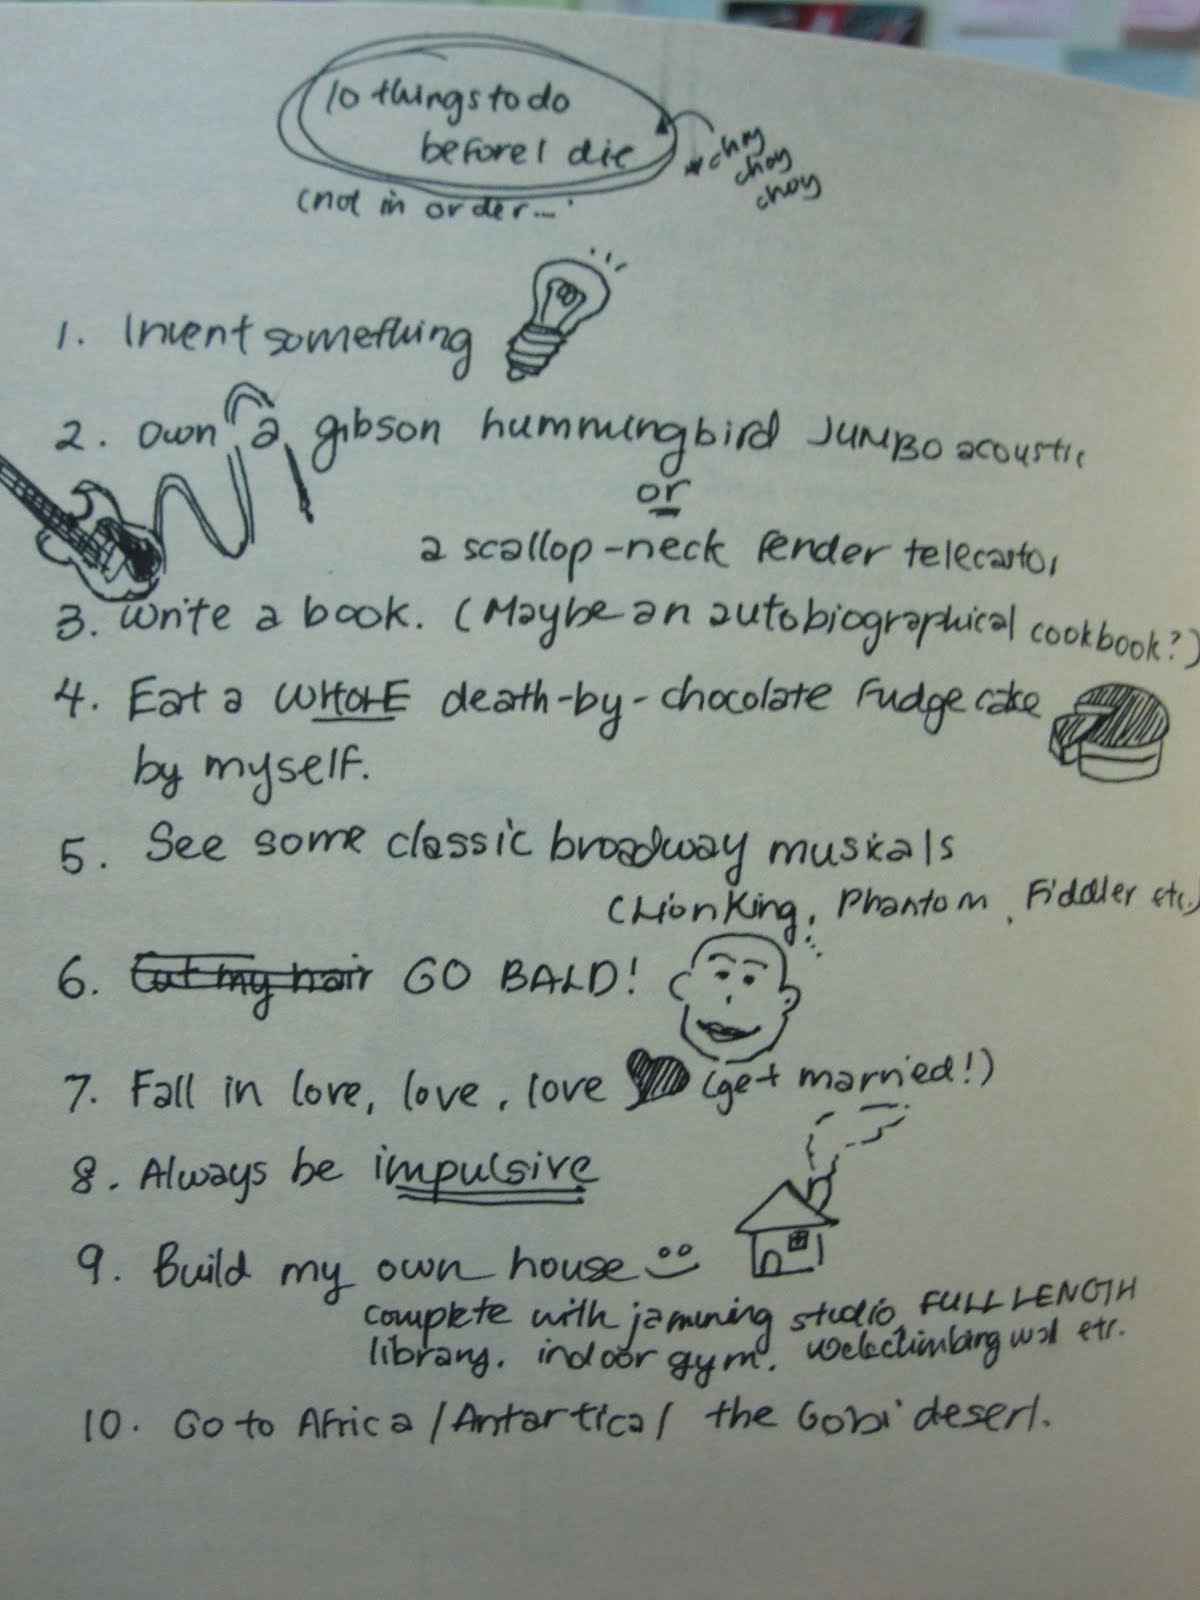 10 things to do
before I die
* choy
choy
choy
(not in order...
1. Invent something
2. Own a gibson hummingbird JUMBO acoustic
or
a scallop-neck Fender telecastor
3. Write a book. (Maybe an autobiographical cookbook?)
4. Eat a WHOLE death-by-chocolate Fudge cake
by myself.
5. See some classic broadway musicals
(Lion King, Phantom, Fiddler etc.)
6. Cut my hair GO BALD!
7. Fall in love, love, love (get married!)
8. Always be impulsive
9. Build my own house
complete with jamming studio, FULL LENGTH
library, indoor gym, wall etc.
10. Go to Africa/Antartica/ the Gobi desert.